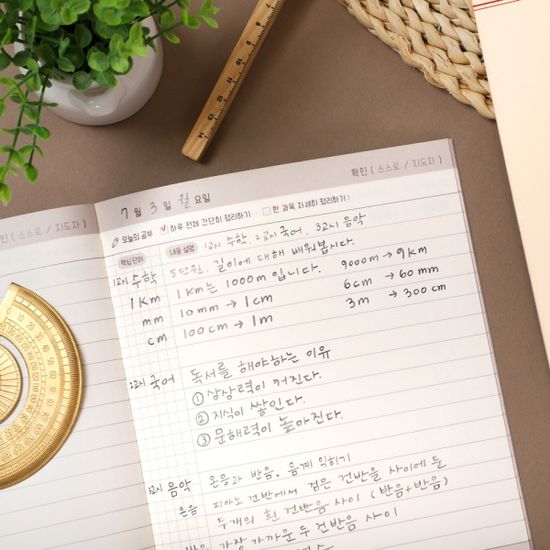 확인 ( 스스로 / 지도자 )
인 ( 스스로 / 지도자 )
7 월 3 일 월 요일
오늘의 공부 하루 전체 간단히 정리하기 한 과목 자세히 정리하기 :
핵심 단어 내용 설명 1교시 수학, 2교시 국어, 3교시 음악
1교시 수학 5단원. 길이에 대해 배워봅시다.
1Km 1Km는 1000m 입니다. 9000m → 9km
mm 10mm → 1cm 6cm → 60mm
cm 100cm → 1m 3m → 300cm
2교시 국어 독서를 해야하는 이유
① 상상력이 커진다.
② 지식이 쌓인다.
③ 문해력이 높아진다.
3교시 음악 온음과 반음, 음계 익히기
온음 피아노 건반에서 검은 건반을 사이에 둔
두개의 흰 건반음 사이 (반음+반음)
반음 가장 가까운 두 건반음 사이